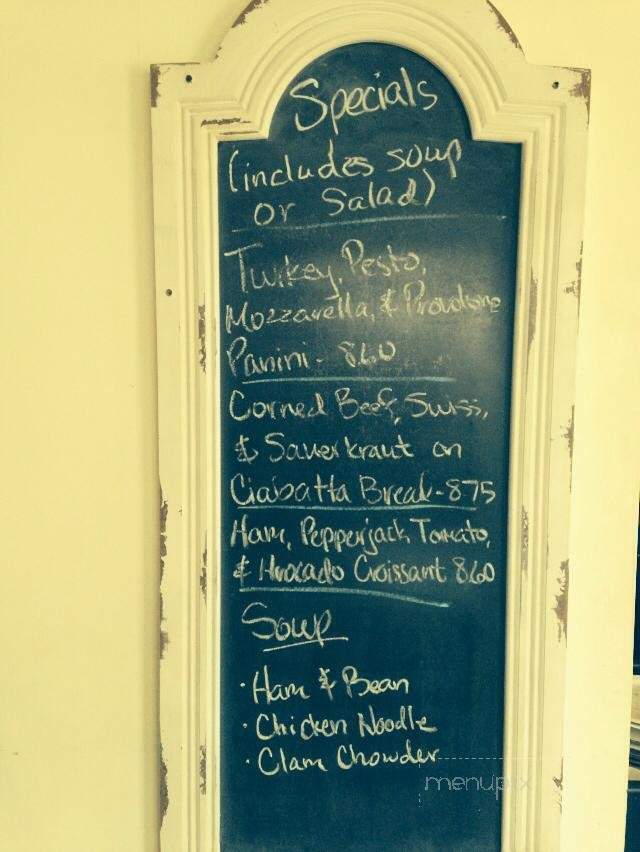 Specials
(includes soup
or Salad)
Turkey, Pesto,
Mozzarella, & Provolone
Panini - 8.60
Corned Beef, Swiss,
& Sauerkraut on
Ciabatta Bread - 8.75
Ham, Pepperjack, Tomato,
& Avocado Croissant 8.60
Soup
· Ham & Bean
· Chicken Noodle
· Clam Chowder
menupix